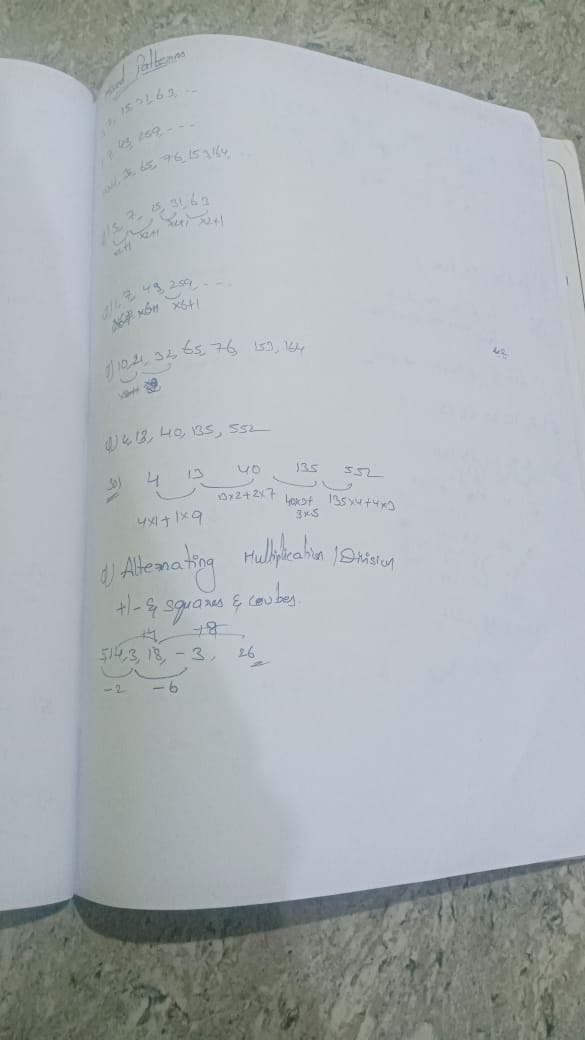 Mixed Patterns
3, 7, 15, 31, 63, ...
1, 7, 43, 259, ...
10, 21, 32, 65, 76, 153, 164, ...
Q) 3, 7, 15, 31, 63
x2+1 x2+1 x2+1 x2+1
Q) 1, 7, 43, 259, ...
x6+1 x6+1
Q) 10, 21, 32, 65, 76, 153, 164
Q) 4, 13, 40, 135, 552
Sol) 4 13 40 135 552
4x1+1x9 13x2+2x7 40x3+3x5 135x4+4x3
Q) Alternating Multiplication / Division
+/- & squares & coubes.
+4 +8
5, 14, 3, 18, -3, 26
-2 -6